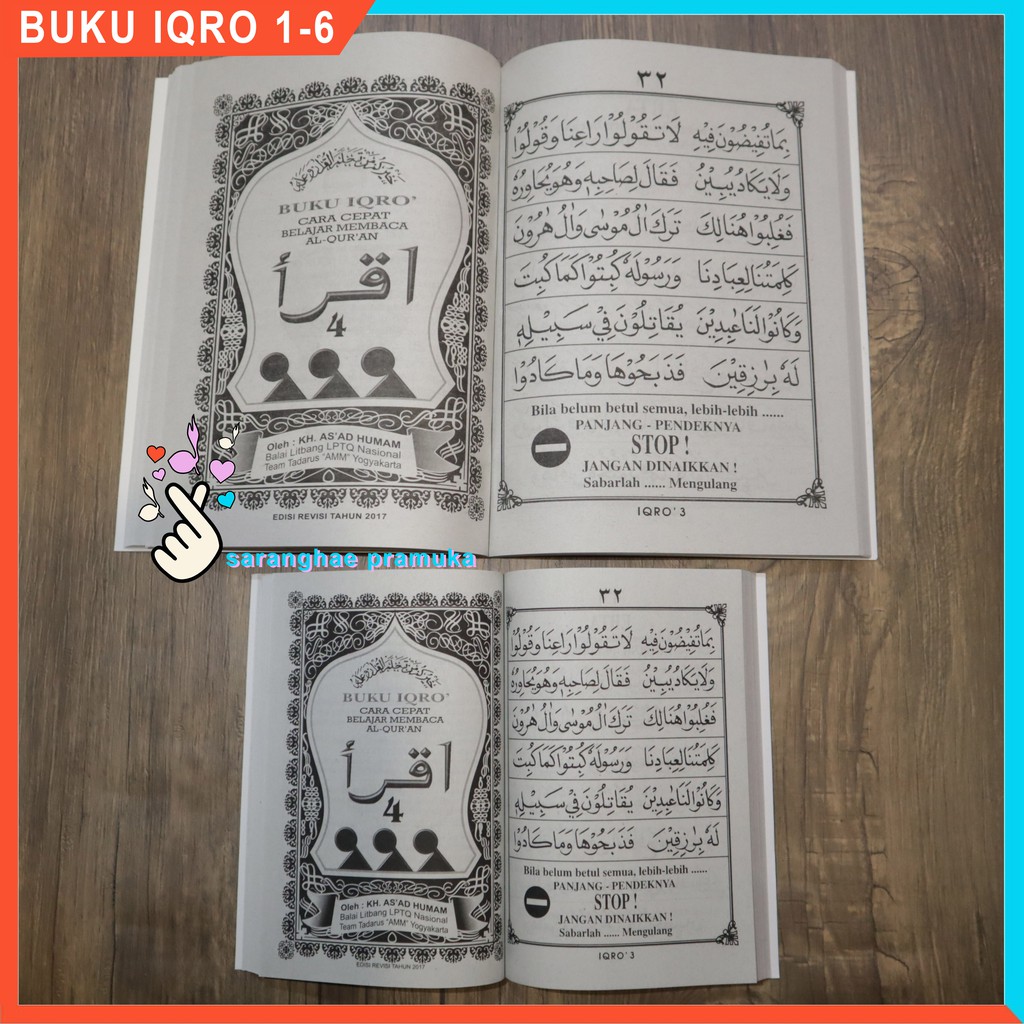 BUKU IQRO 1-6
خيركم من تعلم القرآن وعلمه
BUKU IQRO'
CARA CEPAT
BELAJAR MEMBACA
AL-QUR'AN
اقرأ
4
Oleh : KH. AS'AD HUMAM
Balai Litbang LPTQ Nasional
Team Tadarus "AMM" Yogyakarta
EDISI REVISI TAHUN 2017
٣٢
بِمَاتُفِيْضُوْنَ فِيْهِ لَاتَقُوْلُوْارَاعِنَاوَقُوْلُوْا
وَلَايَكَادُيُبِيْنُ فَقَالَ لِصَاحِبِهٖ وَهُوَيُحَاوِرُهٗ
فَغُلِبُوْاهُنَالِكَ تَرَكَ اٰلُ مُوْسٰى وَاٰلُ هٰرُوْنَ
كَلِمَتُنَالِعِبَادِنَا وَرَسُوْلَهٗ كُبِتُوْاكَمَاكُبِتَ
وَكَانُوْالَنَاعٰبِدِيْنَ يُقَاتِلُوْنَ فِيْ سَبِيْلِهٖ
لَهٗ بِرٰزِقِيْنَ فَذَبَحُوْهَا وَمَاكَادُوْا
Bila belum betul semua, lebih-lebih ......
PANJANG - PENDEKNYA
STOP !
JANGAN DINAIKKAN !
Sabarlah ...... Mengulang
IQRO' 3
saranghae pramuka
خيركم من تعلم القرآن وعلمه
BUKU IQRO'
CARA CEPAT
BELAJAR MEMBACA
AL-QUR'AN
اقرأ
4
Oleh : KH. AS'AD HUMAM
Balai Litbang LPTQ Nasional
Team Tadarus "AMM" Yogyakarta
EDISI REVISI TAHUN 2017
٣٢
بِمَاتُفِيْضُوْنَ فِيْهِ لَاتَقُوْلُوْارَاعِنَاوَقُوْلُوْا
وَلَايَكَادُيُبِيْنُ فَقَالَ لِصَاحِبِهٖ وَهُوَيُحَاوِرُهٗ
فَغُلِبُوْاهُنَالِكَ تَرَكَ اٰلُ مُوْسٰى وَاٰلُ هٰرُوْنَ
كَلِمَتُنَالِعِبَادِنَا وَرَسُوْلَهٗ كُبِتُوْاكَمَاكُبِتَ
وَكَانُوْالَنَاعٰبِدِيْنَ يُقَاتِلُوْنَ فِيْ سَبِيْلِهٖ
لَهٗ بِرٰزِقِيْنَ فَذَبَحُوْهَا وَمَاكَادُوْا
Bila belum betul semua, lebih-lebih ......
PANJANG - PENDEKNYA
STOP !
JANGAN DINAIKKAN !
Sabarlah ...... Mengulang
IQRO' 3